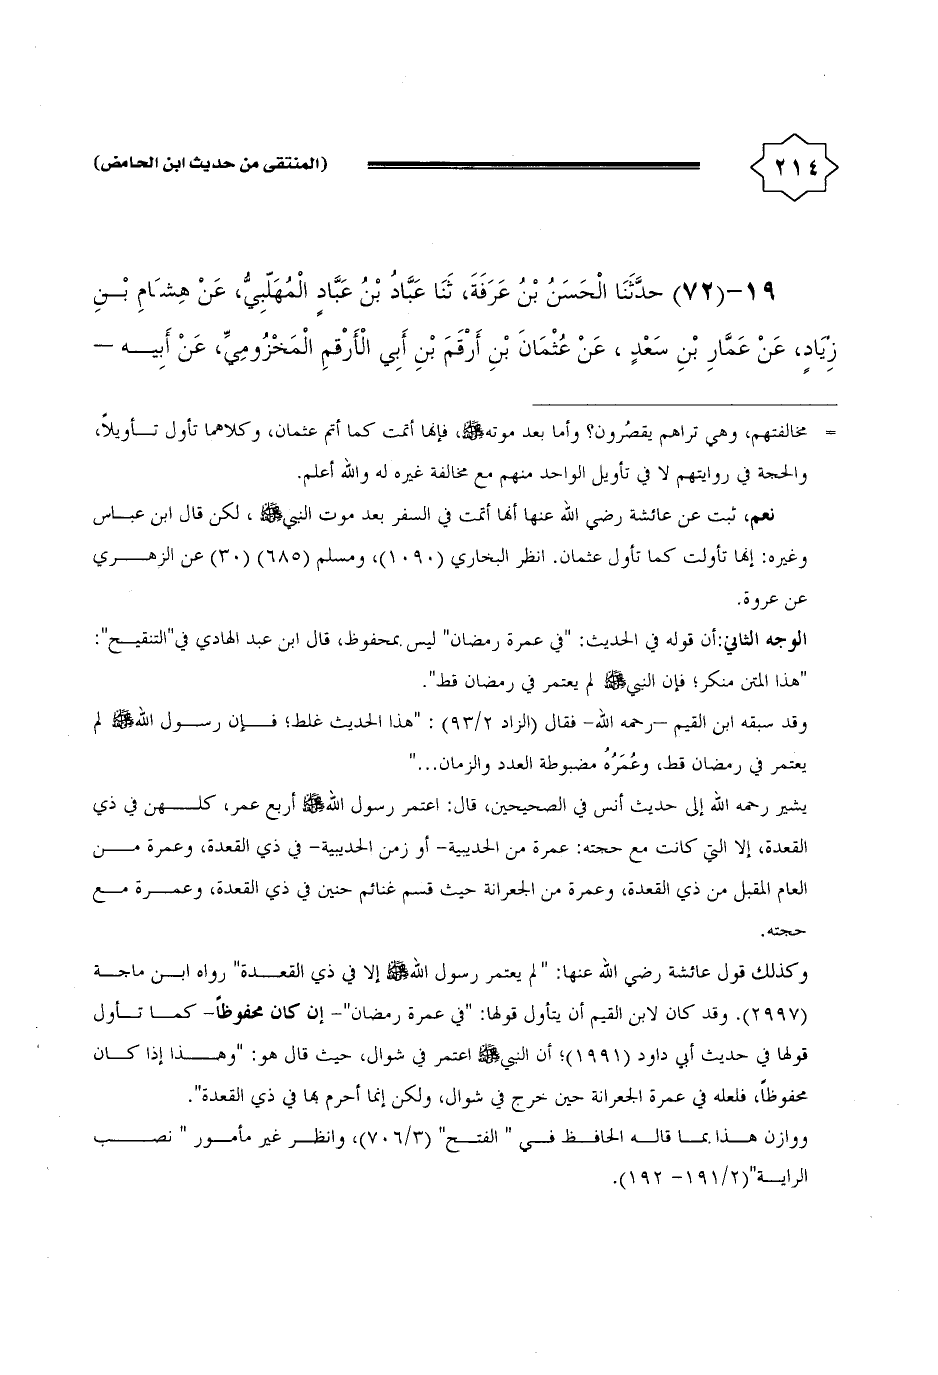 ٢١٤
(المنتقى من حديث ابن الحامض)
١٩-(٧٢) حدَّثَنَا الْحَسَنُ بْنُ عَرَفَةَ، ثَنَا عَبَّادُ بْنُ عَبَّادٍ الْمُهَلَّبِيُّ، عَنْ هِشَامِ بْـنِ
زِيَادٍ، عَنْ عَمَّارِ بْنِ سَعْدٍ ، عَنْ عُثْمَانَ بْنِ أَرْقَمَ بْنِ أَبِي الْأَرْقمِ الْمَخْزُومِيِّ، عَنْ أَبِيـه —
= مخالفتهم، وهي تراهم يقصُرون؟ وأما بعد موتهﷺ، فإنها أتمت كما أتم عثمان، وكلاهما تأول تـأويلاً،
والحجة في روايتهم لا في تأويل الواحد منهم مع مخالفة غيره له والله أعلم.
نعم، ثبت عن عائشة رضي الله عنها أنها أتمت في السفر بعد موت النبيﷺ ، لكن قال ابن عبـاس
وغيره: إنها تأولت كما تأول عثمان. انظر البخاري (١٠٩٠)، ومسلم (٦٨٥) (٣٠) عن الزهـــري
عن عروة.
الوجه الثاني:أن قوله في الحديث: "في عمرة رمضان" ليس بمحفوظ، قال ابن عبد الهادي في"التنقيـح":
"هذا المتن منكر؛ فإن النبيﷺ لم يعتمر في رمضان قط".
وقد سبقه ابن القيم –رحمه الله– فقال (الزاد ٩٣/٢) : "هذا الحديث غلط؛ فـــإن رسـول اللهﷺ لم
يعتمر في رمضان قط، وعُمَرُهُ مضبوطة العدد والزمان..."
يشير رحمه الله إلى حديث أنس في الصحيحين، قال: اعتمر رسول اللهﷺ أربع عمر، كلــهن في ذي
القعدة، إلا التي كانت مع حجته: عمرة من الحديبية– أو زمن الحديبية– في ذي القعدة، وعمرة مـــن
العام المقبل من ذي القعدة، وعمرة من الجعرانة حيث قسم غنائم حنين في ذي القعدة، وعمـرة مـع
حجته.
وكذلك قول عائشة رضي الله عنها: "لم يعتمر رسول اللهﷺ إلا في ذي القعـــدة" رواه ابـن ماجـة
(٢٩٩٧). وقد كان لابن القيم أن يتأول قولها: "في عمرة رمضان"– إن كان محفوظاً– كمـا تـأول
قولها في حديث أبي داود (١٩٩١)؛ أن النبيﷺ اعتمر في شوال، حيث قال هو: "وهـــذا إذا كـان
محفوظاً، فلعله في عمرة الجعرانة حين خرج في شوال، ولكن إنما أحرم بها في ذي القعدة".
ووازن هـذا بمـا قالـه الحافظ فـي " الفتـح" (٧٠٦/٣)، وانظـر غير مأمـور " نصـــب
الرايـة"(١٩١/٢– ١٩٢).